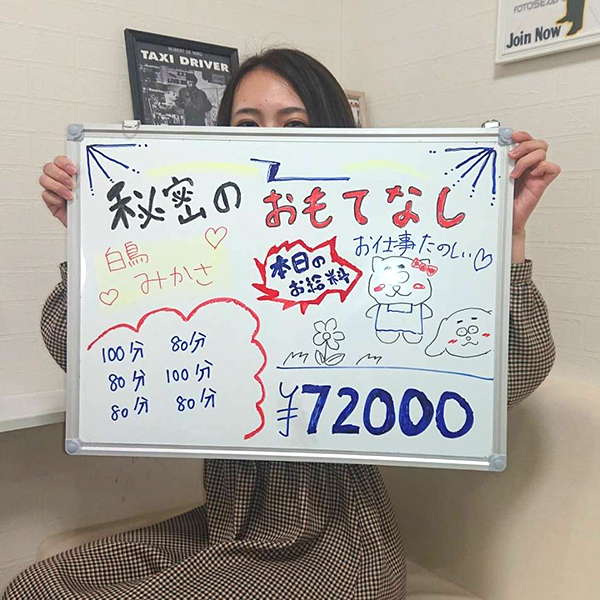 ROBERT DE NIRO
TAXI DRIVER
FOTOSEARCH
Join Now
秘密の
おもてなし
白鳥
みかさ
本日の
お給料
お仕事たのしい♡
100分 80分
80分 100分
80分 80分
¥72000